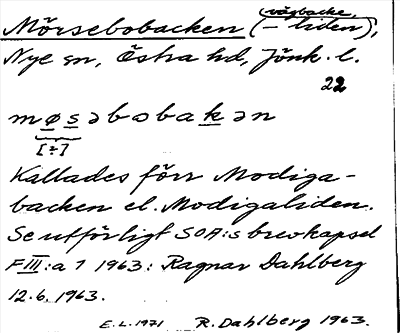 vägbacke
Mörsebobacken (- liden),
Nye sn, Östra hd, Jönk. l.
22
møsəbobakən
[?]
Kallades förr Modiga-
backen el. Modigaliden.
Se utförligt SOA:s brevkapsel
F III:a 1 1963: Ragnar Dahlberg
12.6.1963.
E.L. 1971 R. Dahlberg 1963.